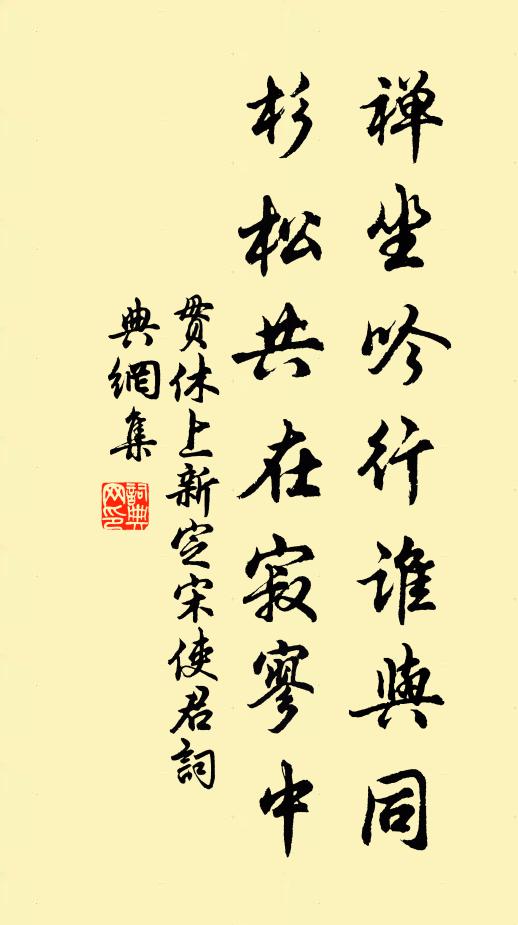 禅坐吟行谁與同
杉松共在寂寥中
贯休上新定宋使君詞
典網集
詞典網印